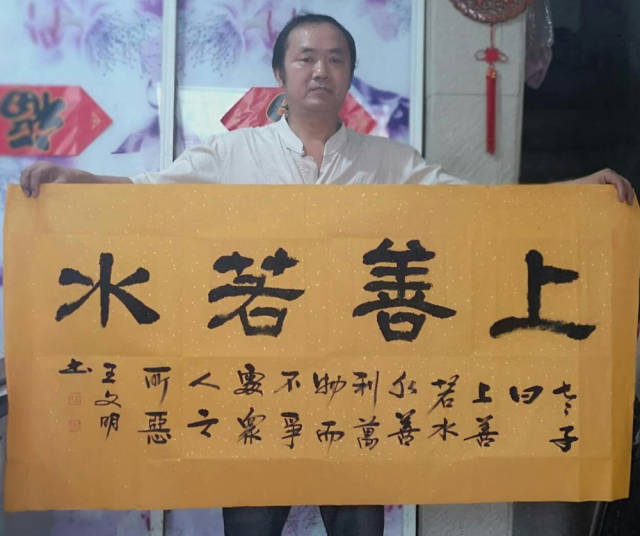 上善若水
老子
曰
上善
若水
水善
利萬
物而
不爭
處衆
人之
所惡
王文明
书